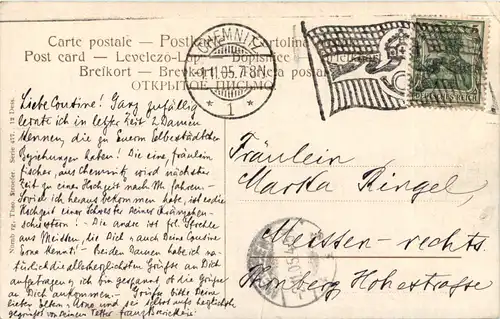 Carte postale – Postkarte – Cartolina
Post card – Levelező-Lap – Dopisnice
Brefkort – Brevkort – postal
ОТКРЫТОЕ ПИСЬМО.
CHEMNITZ
1.11.05. 7-8N.
* 1 *
5
DEUTSCHES REICH
Theo. Stroefer Serie 477. 12 Dess.
Liebe Cousine! Ganz zufällig
lernte ich in letzter Zeit 2 Damen
kennen, die zu Euerm
Beziehungen haben! Die eine, Fräulein
Fischer, aus Chemnitz wird nächster
Zeit zu einer Hochzeit nach M. fahren –
Soviel ich heraus bekommen habe, ist es die
Hochzeit einer Schwester Deiner Kränzchen-
schwestern! – Die andre ist Frl.
aus Meissen, die Dich u. auch Deine Cousine
Erna kennt! – Beiden Damen habe ich na-
türlich die allerherzlichsten Grüße an Dich
aufgetragen; ich bin gespannt ob die Grüße
an Dich ankommen – Grüße bitte Deine
lieben Eltern, Erna und sei selbst aufs herzlichste
gegrüßt von Deinem Vetter
Fräulein
Martha Ringel,
Meissen – rechts.
Hohestrasse